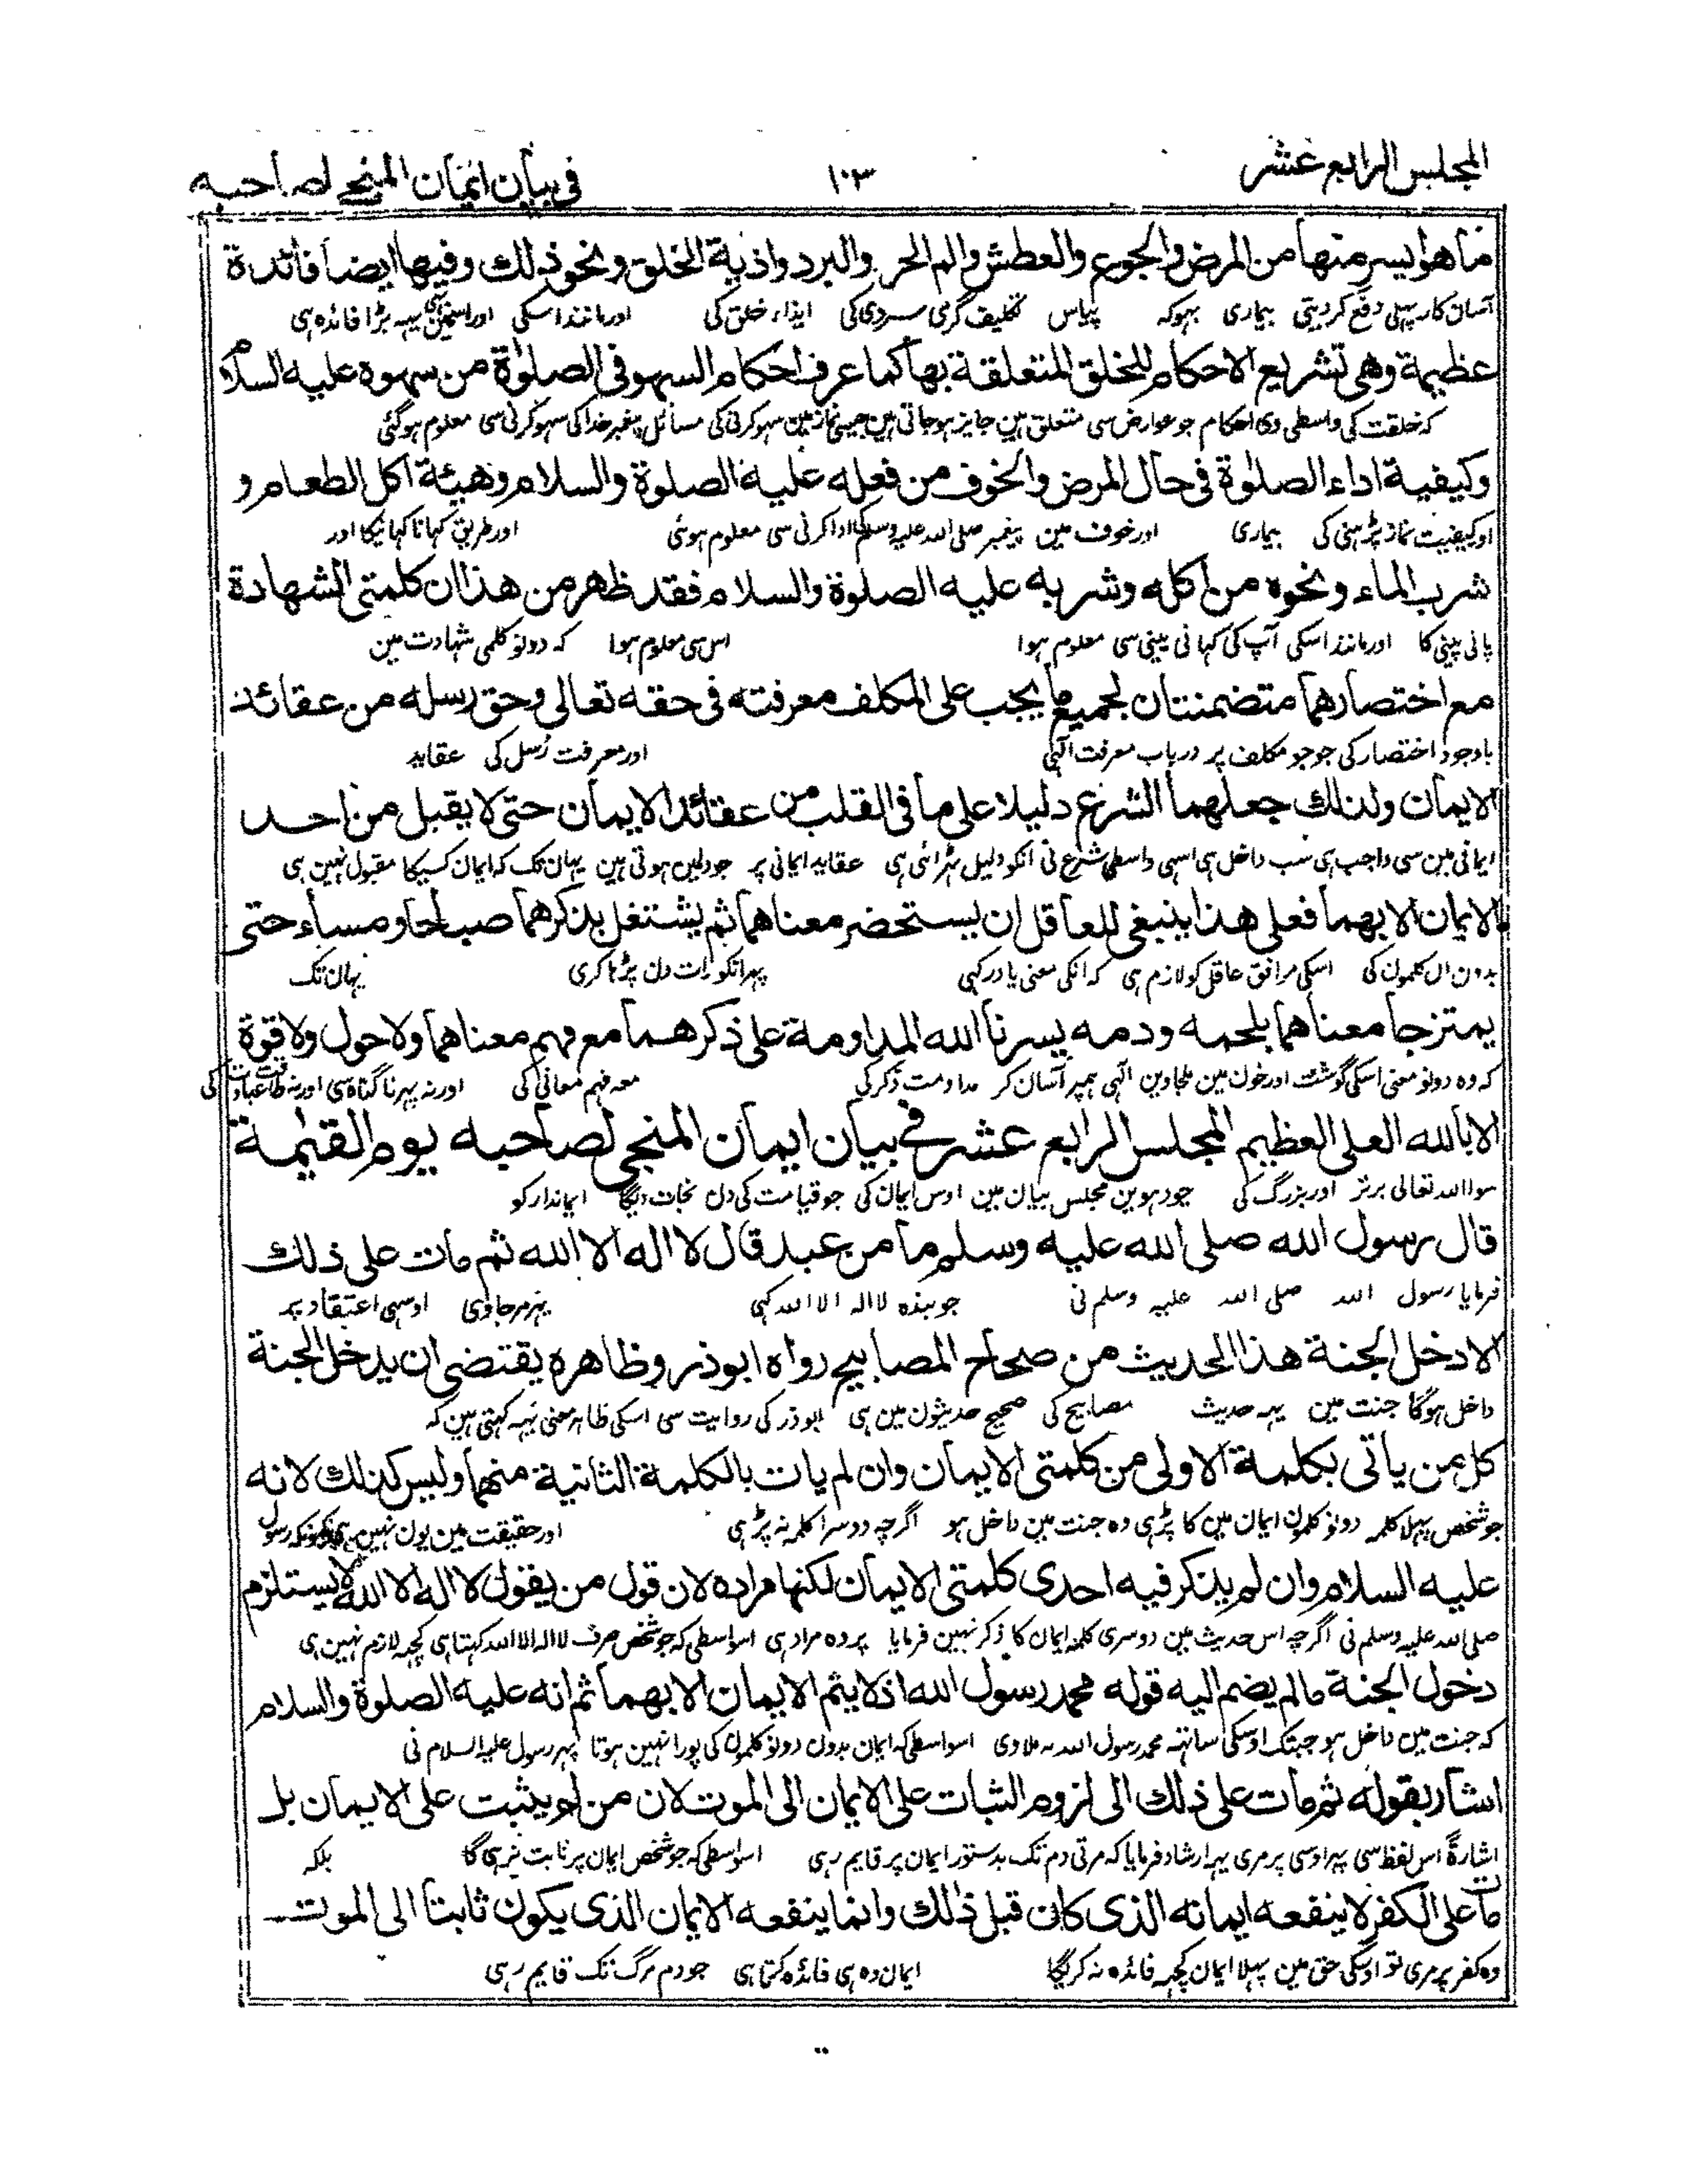 المجلس الرابع عشر ١٠٣ في بيان ايمان المنجى لصاحبه
ما هو ايسر منها من المرض والجوع والعطش والم الحر والبرد واذية الخلق ونحو ذلك وفيها ايضا فائدة
آسان کار پہلی دفع کردیتی بیماری بہوکہ پیاس تکلیف گرمی سردی کی ایذاء خلق کی اور مانند اسکی اور اسمین بہی یہہ بڑا فائدہ ہی
عظيمة وهى تشريع الاحكام للخلق المتعلقة بها كما عرف احكام السهو فى الصلوة من سهوه عليه السلام
کہ خلقت کی واسطی وی احکام جو عوارض سی متعلق ہین جایز ہوجاتی ہین جیسی نماز مین سہو کرنی کی مسائل پیغمبر خدا کی سہو کرنی سی معلوم ہوگئی
وكيفية اداء الصلوة فى حال المرض والخوف من فعله عليه الصلوة والسلام وهيئة اكل الطعام و
اور کیفیت نماز پڑہنی کی بیماری اور خوف مین پیغمبر صلی اللہ علیہ وسلم کی ادا کرنی سی معلوم ہوئی اور طریق کہانا کہانیکا اور
شرب الماء ونحوه من اكله وشربه عليه الصلوة والسلام فقد ظهر من هذا ان كلمتى الشهادة
پانی پینی کا اور مانند اسکی آپ کی کہانی پینی سی معلوم ہوا اس سی معلوم ہوا کہ دونو کلمی شہادت مین
مع اختصارهما متضمنتان لجميع ما يجب على المكلف معرفته فى حقه تعالى وحق رسله من عقائد
باوجود اختصار کی جو جو مکلف پر درباب معرفت الہی اور معرفت رسل کی عقاید
الايمان ولذلك جعلهما الشرع دليلا على ما فى القلب من عقائد الايمان حتى لا يقبل من احد
ایمانی مین سی واجب ہی سب داخل ہی اسی واسطی شرع نی انکو دلیل ٹہرائی ہی عقاید ایمانی پر جو دلمین ہوتی ہین یہان تک کہ ایمان کسیکا مقبول نہین ہی
الايمان الا بهما فعلى هذا ينبغى للعاقل ان يستحضر معناهما ثم يشتغل بذكرهما صباحا ومساء حتى
بدون ان کلمون کی اسکی موافق عاقل کو لازم ہی کہ انکی معنی یاد رکہی پہر انکو رات دن پڑہا کری یہان تک
يمتزجا معناهما بلحمه ودمه يسرنا الله المداومة على ذكرهما مع فهم معناهما ولا حول ولا قوة
کہ وہ دونو معنی اسکی گوشت اور خون مین ملجاوین الہی ہمپر آسان کر مداومت ذکر کی معہ فہم معانی کی اور نہ پہرنا گناہ سی اور نہ طاقت عبادت کی
الا بالله العلى العظيم المجلس الرابع عشر في بيان ايمان المنجى لصاحبه يوم القيمة
سوا اللہ تعالی برتر اور بزرگ کی چودہوین مجلس بیان مین اوس ایمان کی جو قیامت کی دن نجات دیگا ایماندار کو
قال رسول الله صلى الله عليه وسلم ما من عبد قال لا اله الا الله ثم مات على ذلك
فرمایا رسول اللہ صلی اللہ علیہ وسلم نی جو بندہ لا الہ الا اللہ کہی پہر مرجاوی اوسی اعتقاد پر
الا دخل الجنة هذا الحديث من صحاح المصابيح رواه ابو ذر وظاهره يقتضى ان يدخل الجنة
داخل ہوگا جنت مین یہہ حدیث مصابیح کی صحیح حدیثون مین ہی ابوذر کی روایت سی اسکی ظاہر معنی یہہ کہتی ہین کہ
كل من ياتى بكلمة الاولى من كلمتى الايمان وان لم يات بالكلمة الثانية منهما وليس كذلك لانه
جو شخص پہلا کلمہ دونو کلمون ایمان مین کا پڑہی وہ جنت مین داخل ہو اگرچہ دوسرا کلمہ نہ پڑہی اور حقیقت مین یون نہین ہی کیونکہ رسول
عليه السلام وان لم يذكر فيه احدى كلمتى الايمان لكنها مراده لان قول من يقول لا اله الا الله لا يستلزم
صلی اللہ علیہ وسلم نی اگرچہ اس حدیث مین دوسری کلمہ ایمان کا ذکر نہین فرمایا پر وہ مراد ہی اسواسطی کہ جو شخص صرف لا الہ الا اللہ کہتا ہی کچہہ لازم نہین ہی
دخول الجنة ما لم يضم اليه قوله محمد رسول الله اذ لا يتم الايمان الا بهما ثم انه عليه الصلوة والسلام
کہ جنت مین داخل ہو جبتک اوسکی ساتہہ محمد رسول اللہ نہ ملاوی اسواسطی کہ ایمان بدون دونو کلمون کی پورا نہین ہوتا پہر رسول علیہ السلام نی
اشار بقوله ثم مات على ذلك الى لزوم الثبات على الايمان الى الموت لان من لم يثبت على الايمان بل
اشارۃً اس لفظ سی پہر اوسی پر مری یہہ ارشاد فرمایا کہ مرتی دم تک بدستور ایمان پر قایم رہی اسواسطی کہ جو شخص ایمان پر ثابت نہ رہی گا بلکہ
مات على الكفر لا ينفعه ايمانه الذى كان قبل ذلك وانما ينفعه الايمان الذى يكون ثابتا الى الموت
وہ کفر پر مری تو اوسکی حق مین پہلا ایمان کچہہ فائدہ نہ کریگا ایمان وہ ہی فائدہ کرتا ہی جو دم مرگ تک قایم رہی